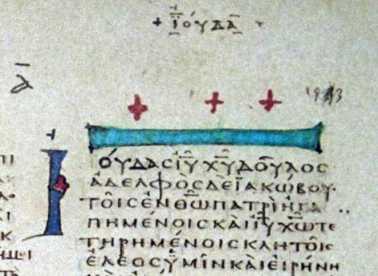 + ΪΟΥΔΑ +
ΙΟΥΔΑΣ ΙΥ ΧΥ ΔΟΥΛΟΣ
ΑΔΕΛΦΟΣ ΔΕ ΙΑΚΩΒΟΥ
ΤΟΙΣ ΕΝ ΘΩ ΠΑΤΡΙ ΗΓΑ
ΠΗΜΕΝΟΙΣ ΚΑΙ ΙΥ ΧΩ ΤΕ
ΤΗΡΗΜΕΝΟΙΣ ΚΛΗΤΟΙΣ
ΕΛΕΟΣ ΥΜΙΝ ΚΑΙ ΕΙΡΗΝΗ